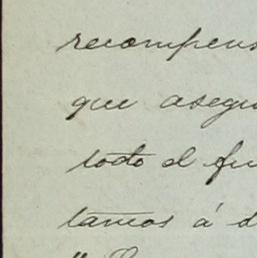 recompens
que asegu
todo el fu
tamos á d